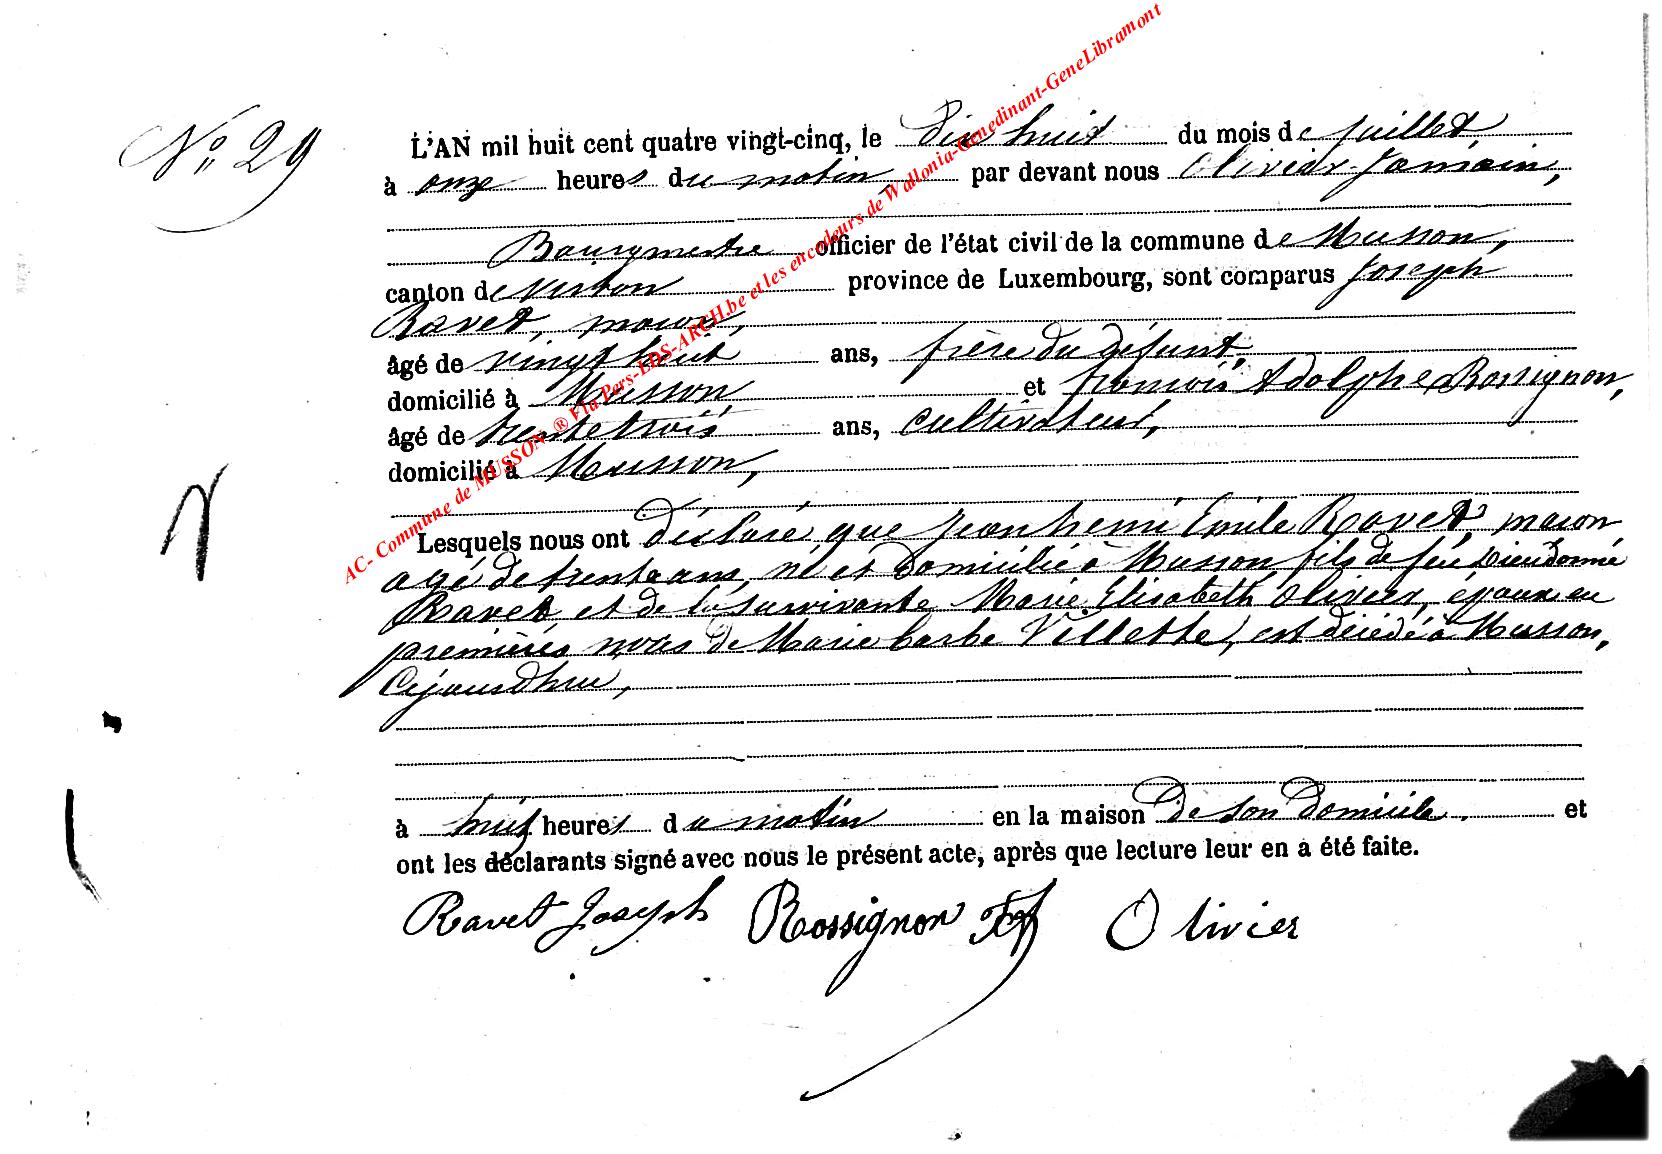 N° 29
L'AN mil huit cent quatre vingt-cinq, le dix huit du mois de Juillet
à onze heures du matin par devant nous Olivier Jamain,
Bourgmestre officier de l'état civil de la commune de Musson,
canton de Virton province de Luxembourg, sont comparus Joseph
Ravet, maçon,
âgé de vingt huit ans, frère du défunt,
domicilié à Musson et françois Adolphe Rossignon,
âgé de trente trois ans, cultivateur,
domicilié à Musson,
Lesquels nous ont déclaré que Jean henri Emile Ravet, maçon
agé de trente ans, né et domicilié à Musson fils de feu Dieudonné
Ravet et de la survivante Marie Elisabeth Olivier, époux en
premières noces de Marie barbe Villette, est décédé à Musson,
Cejourd'hui,
à huit heures du matin en la maison de son domicile. et
ont les déclarants signé avec nous le présent acte, après que lecture leur en a été faite.
Ravet Joseph Rossignon Olivier
AC- Commune de MUSSON ® Fla Pers-LDS-ARCH.be et les encodeurs de Wallonia-Genedinant-GeneLibramont